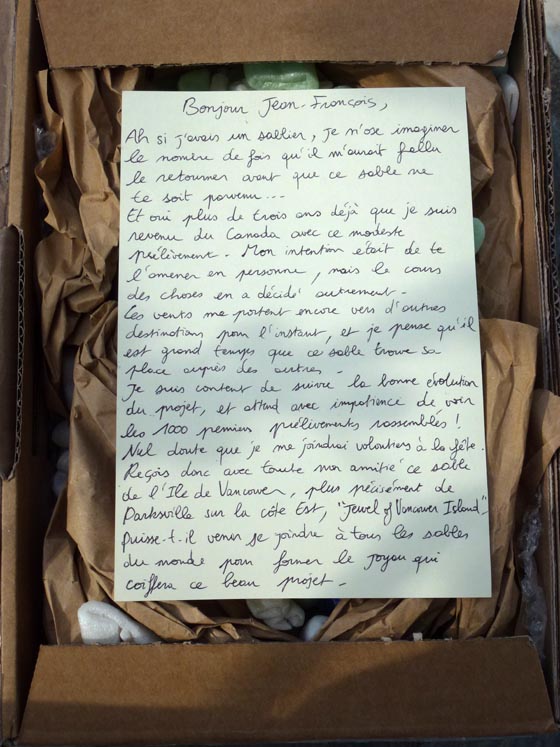 Bonjour Jean-François,
Ah si j'avais un sablier, je n'ose imaginer
le nombre de fois qu'il m'aurait fallu
le retourner avant que ce sable ne
te soit parvenu...
Et oui plus de trois ans déjà que je suis
revenu du Canada avec ce modeste
prélèvement. Mon intention était de te
l'amener en personne, mais le cours
des choses en a décidé autrement.
Les vents me portent encore vers d'autres
destinations pour l'instant, et je pense qu'il
est grand temps que ce sable trouve sa
place auprès des autres.
Je suis content de suivre la bonne évolution
du projet, et attend avec impatience de voir
les 1000 premiers prélèvements rassemblés !
Nul doute que je me joindrai volontiers à la fête.
Reçois donc avec toute mon amitié ce sable
de l'Ile de Vancouver, plus précisément de
Parksville sur la côte Est, "Jewel of Vancouver Island".
Puisse-t-il venir se joindre à tous les sables
du monde pour former le joyau qui
coiffera ce beau projet.